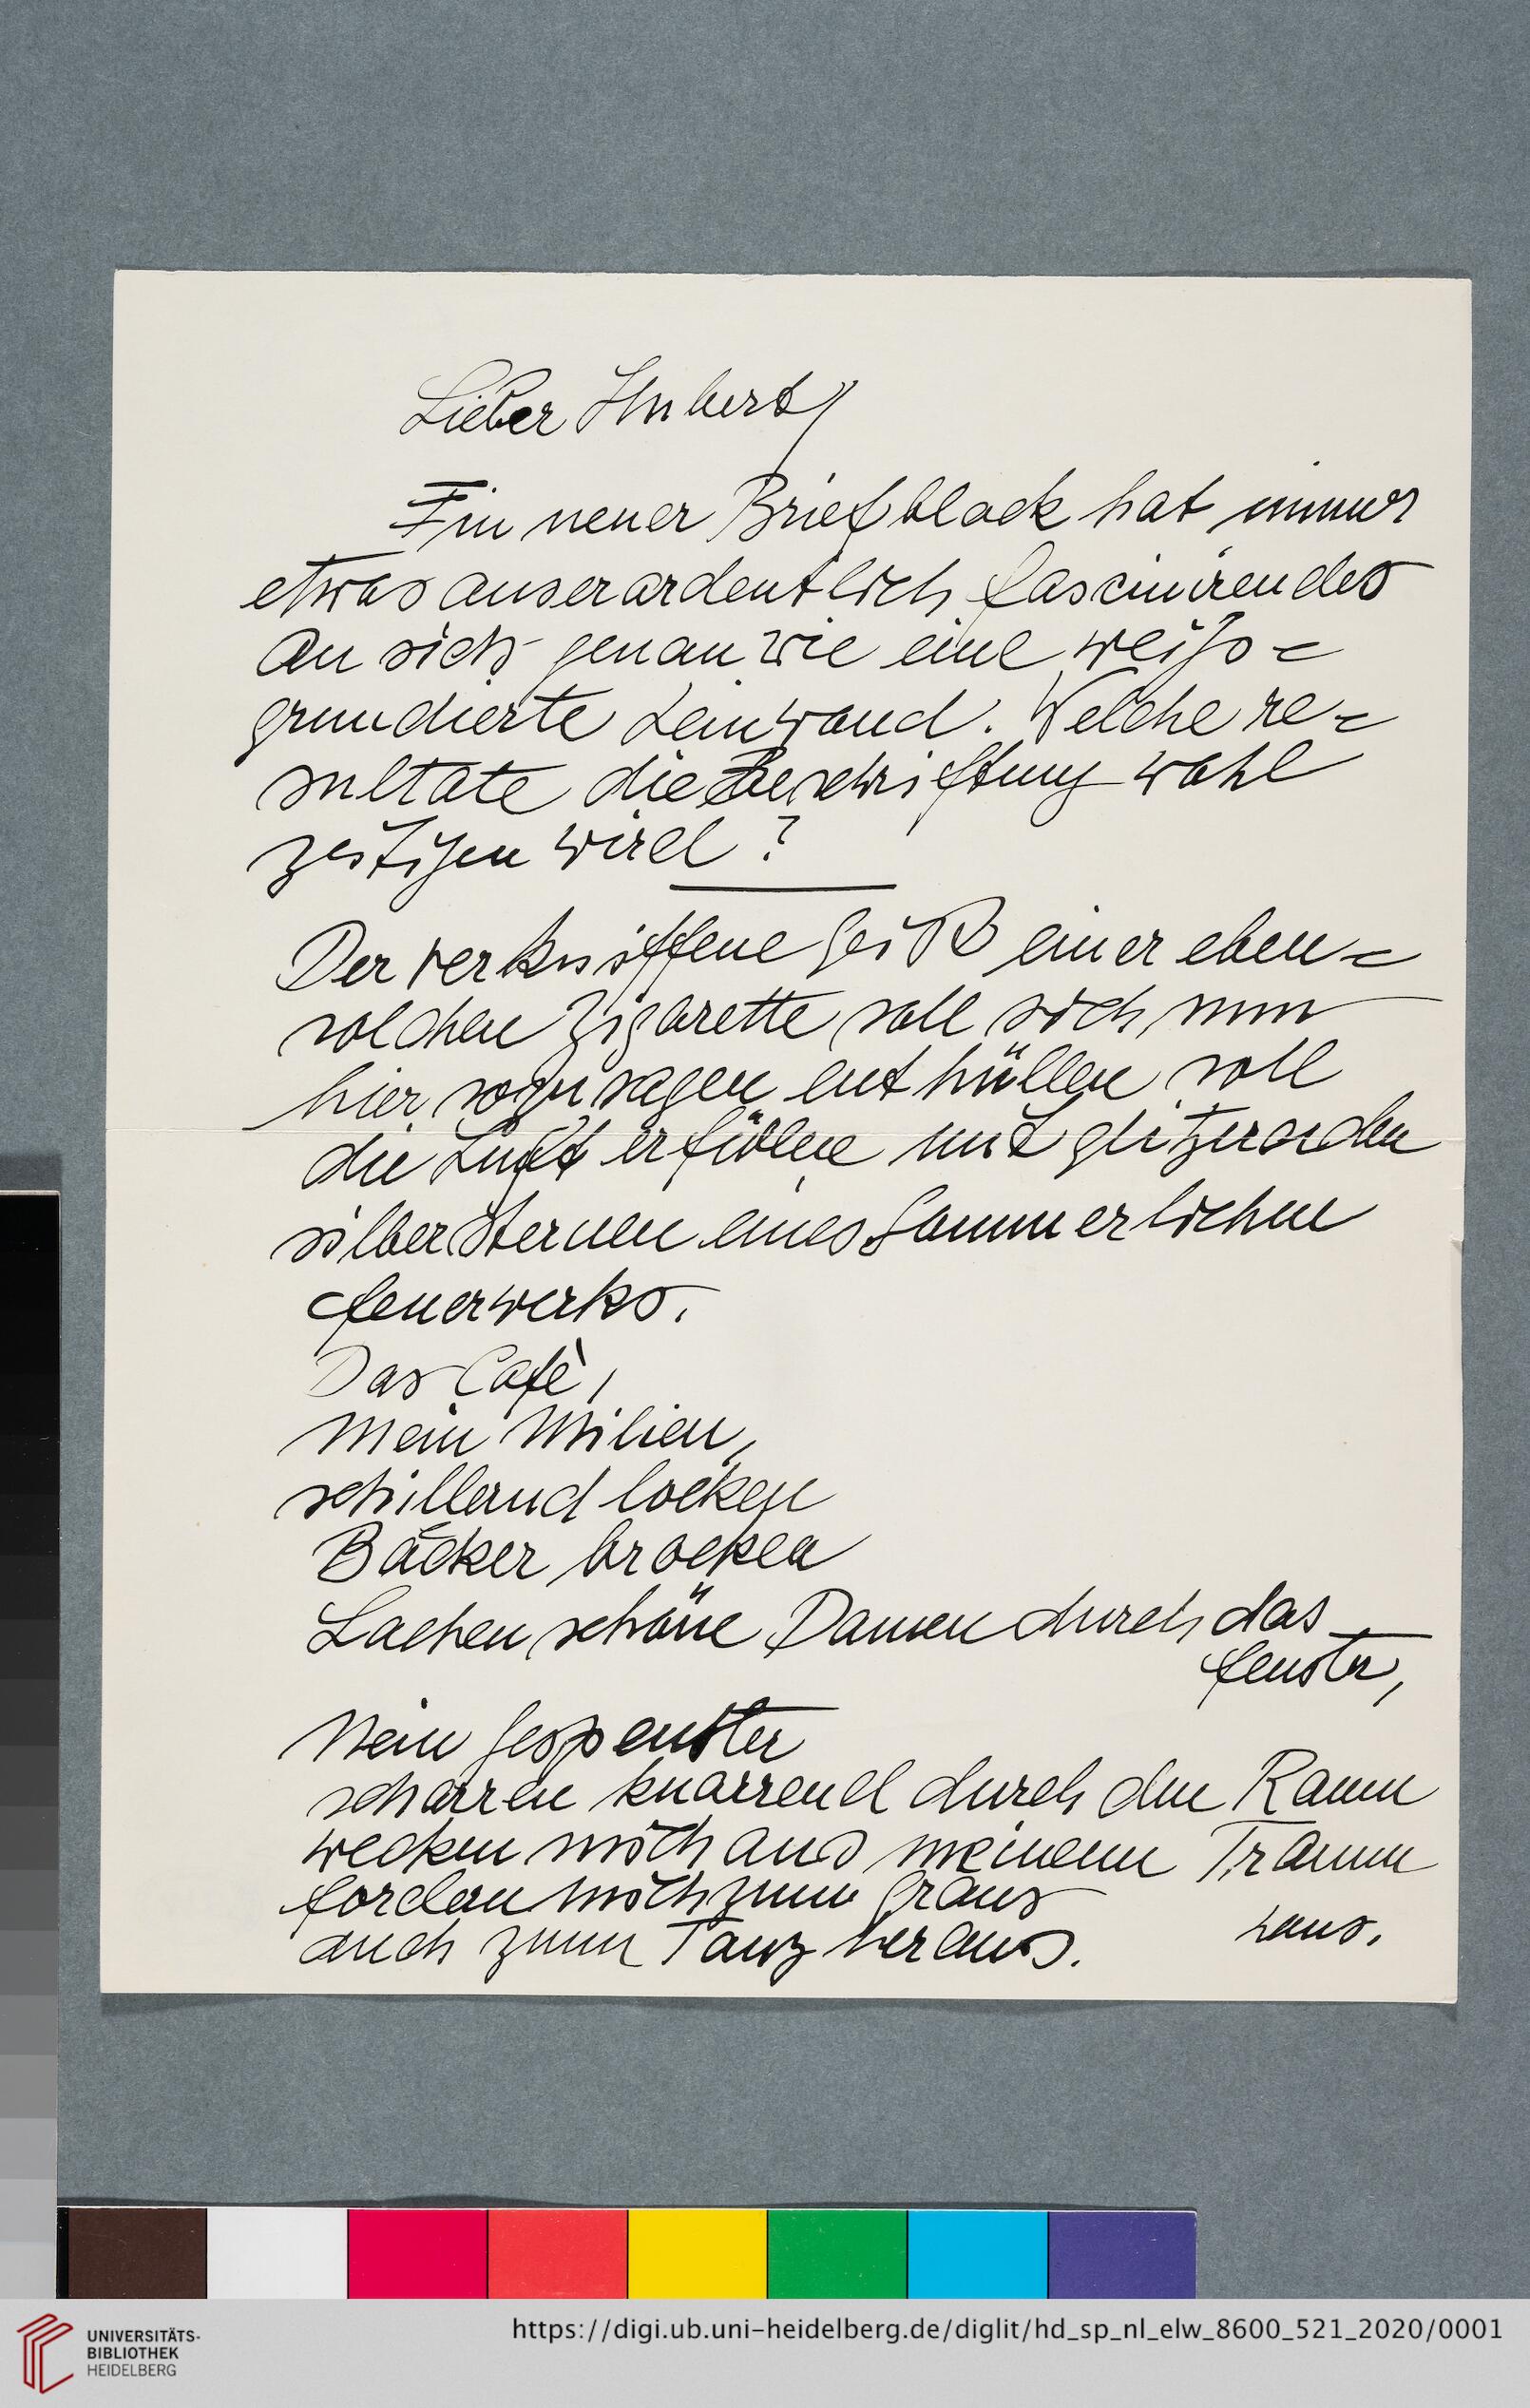 Lieber Hubert,
Ein neuer Briefblock hat immer
etwas auserordentlich fascinirendes
an sich genau wie eine weiss=
grundierte Leinwand. Welche re=
sultate die Beschriftung wohl
zeitigen wird?
Der verkniffene Geist einer eben=
solchen Zigarette soll sich nun
hier sozusagen enthüllen soll
die Luft erfüllen mit glitzernden
silbersternen eines Sommerlichen
feuerwerks.
Das Cafè,
Mein Milieu,
schillernd locken
Bäcker brocken
Lachen schöne Damen durch das
fenster,
Nein Gespenster
scharren knarrend durch den Raum
wecken mich aus meinem Traum
fordern mich zum Graus
auch zum Tanz heraus.
Hans.
UNIVERSITÄTS-
BIBLIOTHEK
HEIDELBERG
https://digi.ub.uni-heidelberg.de/diglit/hd_sp_nl_elw_8600_521_2020/0001